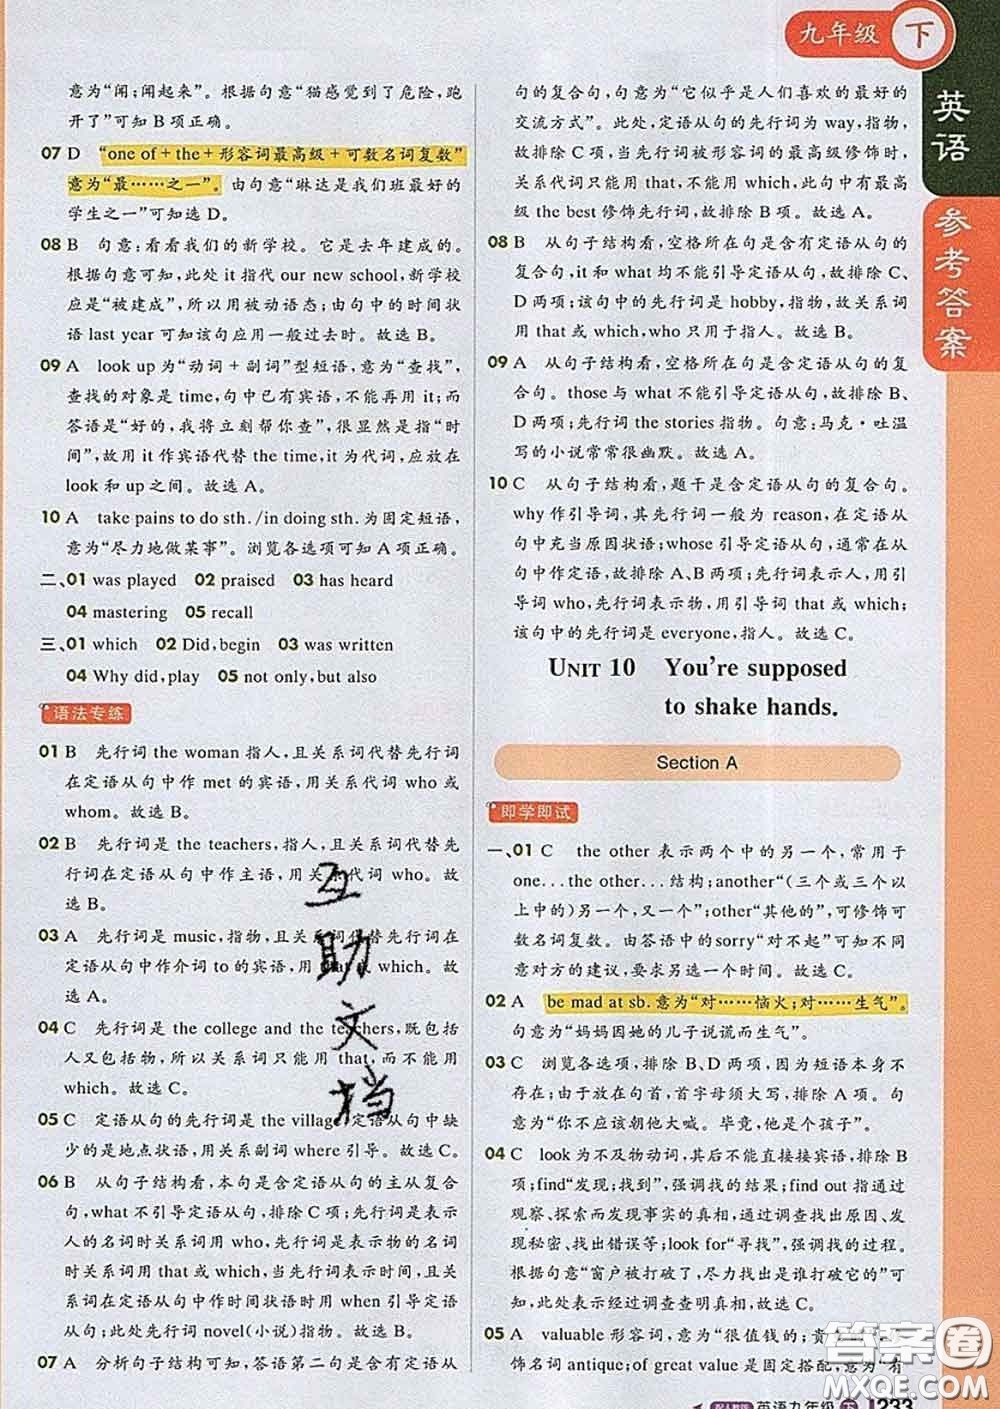 九年级 下
英语
参考答案
意为“闻;闻起来”。根据句意“猫感觉到了危险,跑
开了”可知 B 项正确。
07 D “one of + the + 形容词最高级 + 可数名词复数”
意为“最……之一”。由句意“琳达是我们班最好的
学生之一”可知选 D。
08 B 句意:看看我们的新学校。它是去年建成的。
根据句意可知,此处 it 指代 our new school,新学校
应是“被建成”,所以用被动语态;由句中的时间状
语 last year 可知该句应用一般过去时。故选 B。
09 A look up为“动词 + 副词”型短语,意为“查找”,
查找的对象是 time,句中有宾语,不能再用 it;而
答语是“好的,我将立刻帮你查”,很显然是指“时
间”,故用 it 作宾语代替 the time,it 为代词,应放在
look 和 up 之间。故选 A。
10 A take pains to do sth. /in doing sth. 为固定短语,
意为“尽力地做某事”。浏览各选项可知 A 项正确。
二、01 was played 02 praised 03 has heard
04 mastering 05 recall
三、01 which 02 Did, begin 03 was written
04 Why did, play 05 not only, but also
语法专练
01 B 先行词 the woman 指人,且关系词代替先行词
在定语从句中作 met 的宾语,用关系代词 who 或
whom。故选 B。
02 B 先行词是 the teachers,指人,且关系词代替先
行词在定语从句中作主语,用关系代词 who。故
选 B。
03 A 先行词是 music,指物,且关系词代替先行词在
定语从句中作介词 to 的宾语,用 that 或 which。故
选 A。
04 C 先行词是 the college and the teachers,既包括
人又包括物,所以关系词只能用 that,而不能用
which。故选 C。
05 C 定语从句的先行词是 the village,定语从句中缺
少的是地点状语,用关系副词 where 引导。故选 C。
06 B 从句子结构看,本句是含定语从句的主从复合
句,what 不引导定语从句,排除 C 项;先行词是表示
人的名词时关系词用 who,先行词是表示物的名词
时关系词用 that;当先行词是表示时间,且关系
词在定语从句中作时间状语时用 when 引导定语从
句;此处先行词 novel(小说)指物。故选 B。
07 A 分析句子结构可知,答语第二句是含有定语从
句的复合句,句意为“它似乎是人们喜欢的最好的
交流方式”。此处,定语从句的先行词为 way,指物,
故排除 C 项,当先行词被形容词的最高级修饰时,
关系代词只能用 that,不能用 which,此句中有最高
级 the best 修饰先行词,故排除 B 项。故选 A。
08 B 从句子结构看,空格所在句是含有定语从句的
复合句,it 和 what 均不能引导定语从句,故排除 C、
D 两项;该句中的先行词是 hobby,指物,故关系词
用 that 或 which,who 只用于指人。故选 B。
09 A 从句子结构看,空格所在句是含定语从句的复
合句。those 与 what 不能引导定语从句,故排除 B、
D 两项;先行词 the stories 指物。句意:马克·吐温
写的小说常常很幽默。故选 A。
10 C 从句子结构看,题干是含定语从句的复合句。
why 作引导词,其先行词一般为 reason,在定语从
句中充当原因状语;whose 引导定语从句,通常在从
句中作定语,故排除 A、B 两项;先行词表示人,用引
导词 who,先行词表示物,用引导词 that 或 which;
该句中的先行词是 everyone,指人。故选 C。
UNIT 10 You're supposed
to shake hands.
Section A
即学即试
一、01 C the other 表示两个中的另一个,常用于
one... the other... 结构;another“(三个或三个以
上中的)另一个,又一个”;other“其他的”,可修饰可
数名词复数。由答语中的sorry“对不起”可知不同
意对方的建议,要求另选一个时间。故选 C。
02 A be mad at sb. 意为“对……恼火;对……生气”。
句意为“妈妈因她的儿子说谎而生气”。
03 C 浏览各选项,排除 B、D 两项,因为短语本身不
存在。由于放在句首,首字母要大写,故排除 A 项。句
意为“你不应该朝他大喊。毕竟,他是个孩子”。
04 C look 为不及物动词,其后不能直接接宾语,排除 B
项;find“发现;找到”,强调找的结果;find out 指通过
观察、探索而发现事实的真相,通过调查找出原因、发
现秘密、找出错误等;look for“寻找”,强调找的过程。
根据句意“窗户被打破了,尽力找出是谁打破它的”可
知,此处表示经过调查查明真相。故选 C。
05 A valuable 形容词,意为“很值钱的;贵
饰名词 antique;of great value 是固定搭配,意为“有
配人教版 英语九年级 下 1233
互助文档
答案圈
MXQE.COM